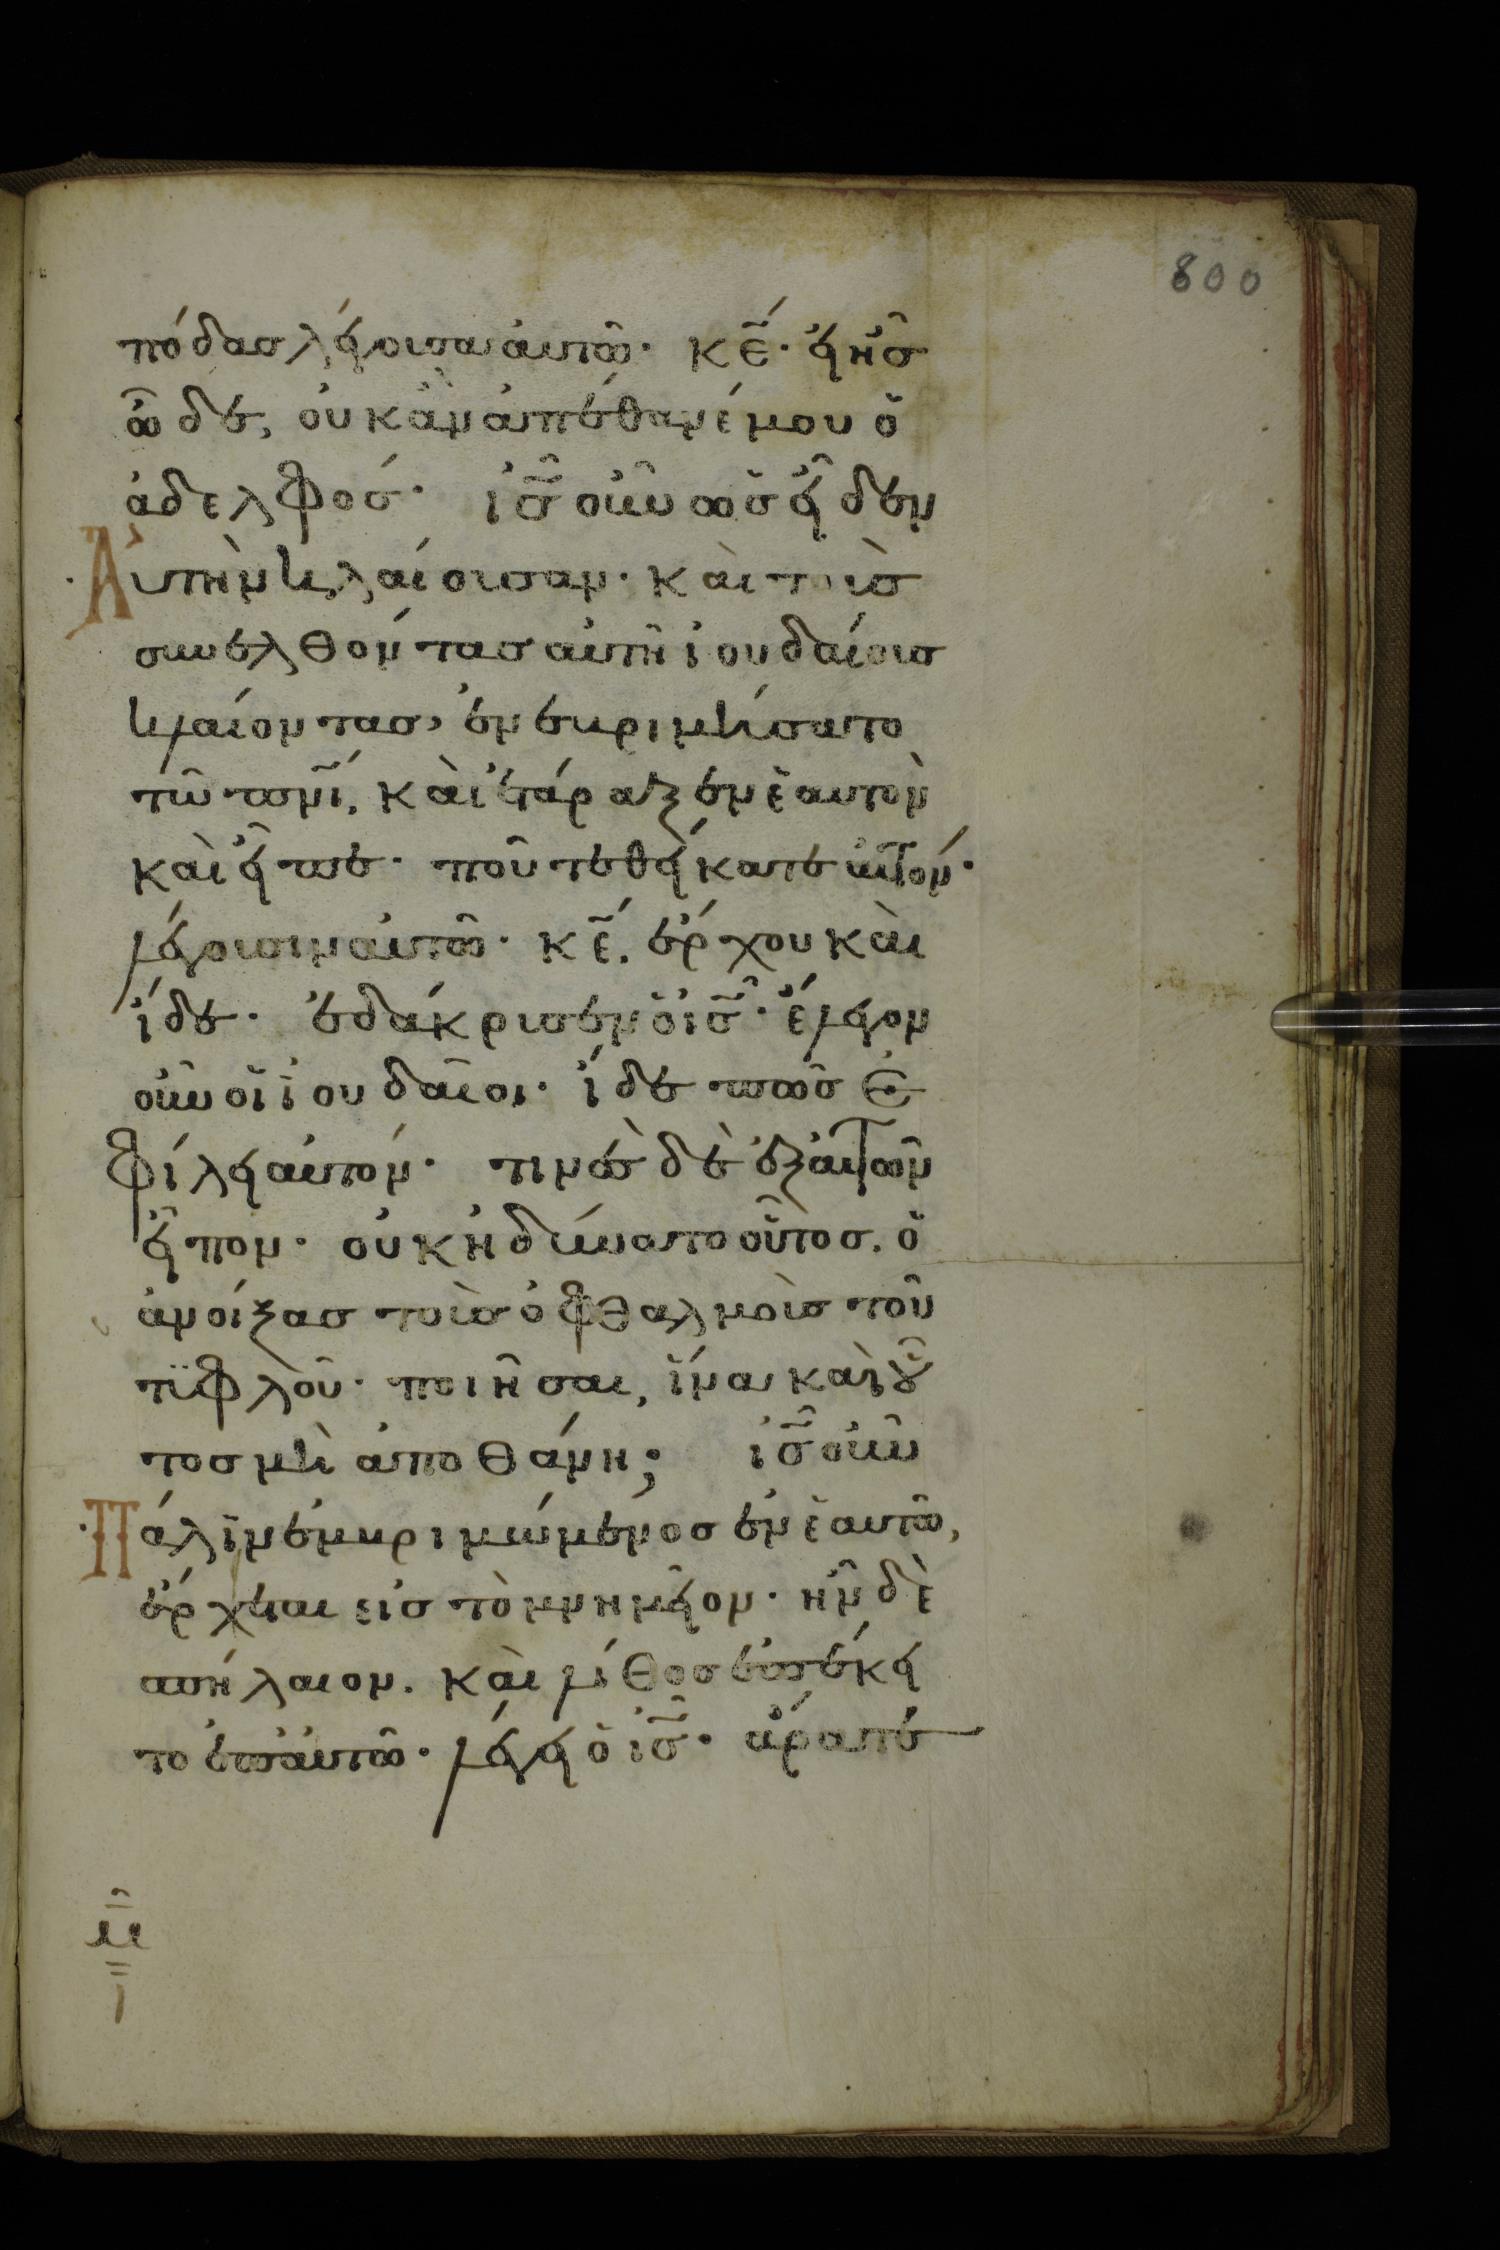 800
πόδας λέγουσα αὐτῶ· κ̅ε̅· εἰ ἦς
ὧδε, οὐκ ἂν ἀπέθανέ μου ὁ
ἀδελφός· ι̅ς̅ οὖν ὡς εἶδεν
Αὐτὴν κλαίουσαν· καὶ τοὺς
συνελθόντας αὐτῆ ἰουδαίους
κλαίοντας, ἐνεβριμήσατο
τῶ π̅ν̅ι̅, καὶ ἐτάραξεν ἑαυτὸν
καὶ εἶπε· ποῦ τεθείκατε αὐτόν·
λέγουσιν αὐτῶ· κ̅ε̅. ἔρχου καὶ
ἴδε· ἐδάκρυσεν ὁ ι̅ς̅· ἔλεγον
οὖν οἱ ἰουδαῖοι· ἴδε πῶς ἐ
φίλει αὐτόν· τινὲς δὲ ἐξ αὐτῶν
εἶπον· οὐκ ἠδύνατο οὗτος. ὁ
ἀνοίξας τοὺς ὀφθαλμοὺς τοῦ
τϋφλοῦ· ποιῆσαι, ἵνα καὶ οὗ
τος μὴ ἀποθάνη; ι̅ς̅ οὖν
Πάλιν ἐμβριμώμενος ἐν ἑαυτῶ,
ἔρχεται εἰς τὸ μνημεῖον· ἦν δὲ
σπήλαιον. καὶ λίθος ἐπέκει
το ἐπ αὐτῶ· λέγει ὁ ι̅ς̅· ἄρατε